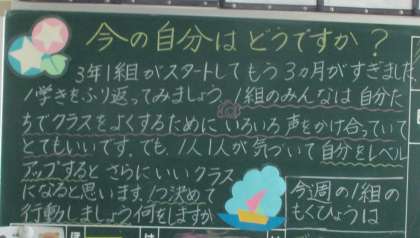 今の自分は どうですか？
3年1組がスタートしてもう3カ月がすぎました
1学きをふり返ってみましょう 1組のみんなは自分た
ちでクラスをよくするために いろいろ声をかけ合っていて
とてもいいです。でも、1人1人が気づいて自分をレベル
アップすると さらにいいクラス
になると思います。1つ決めて
行動しましょう何をしますか
今週の1組の
もくひょうは